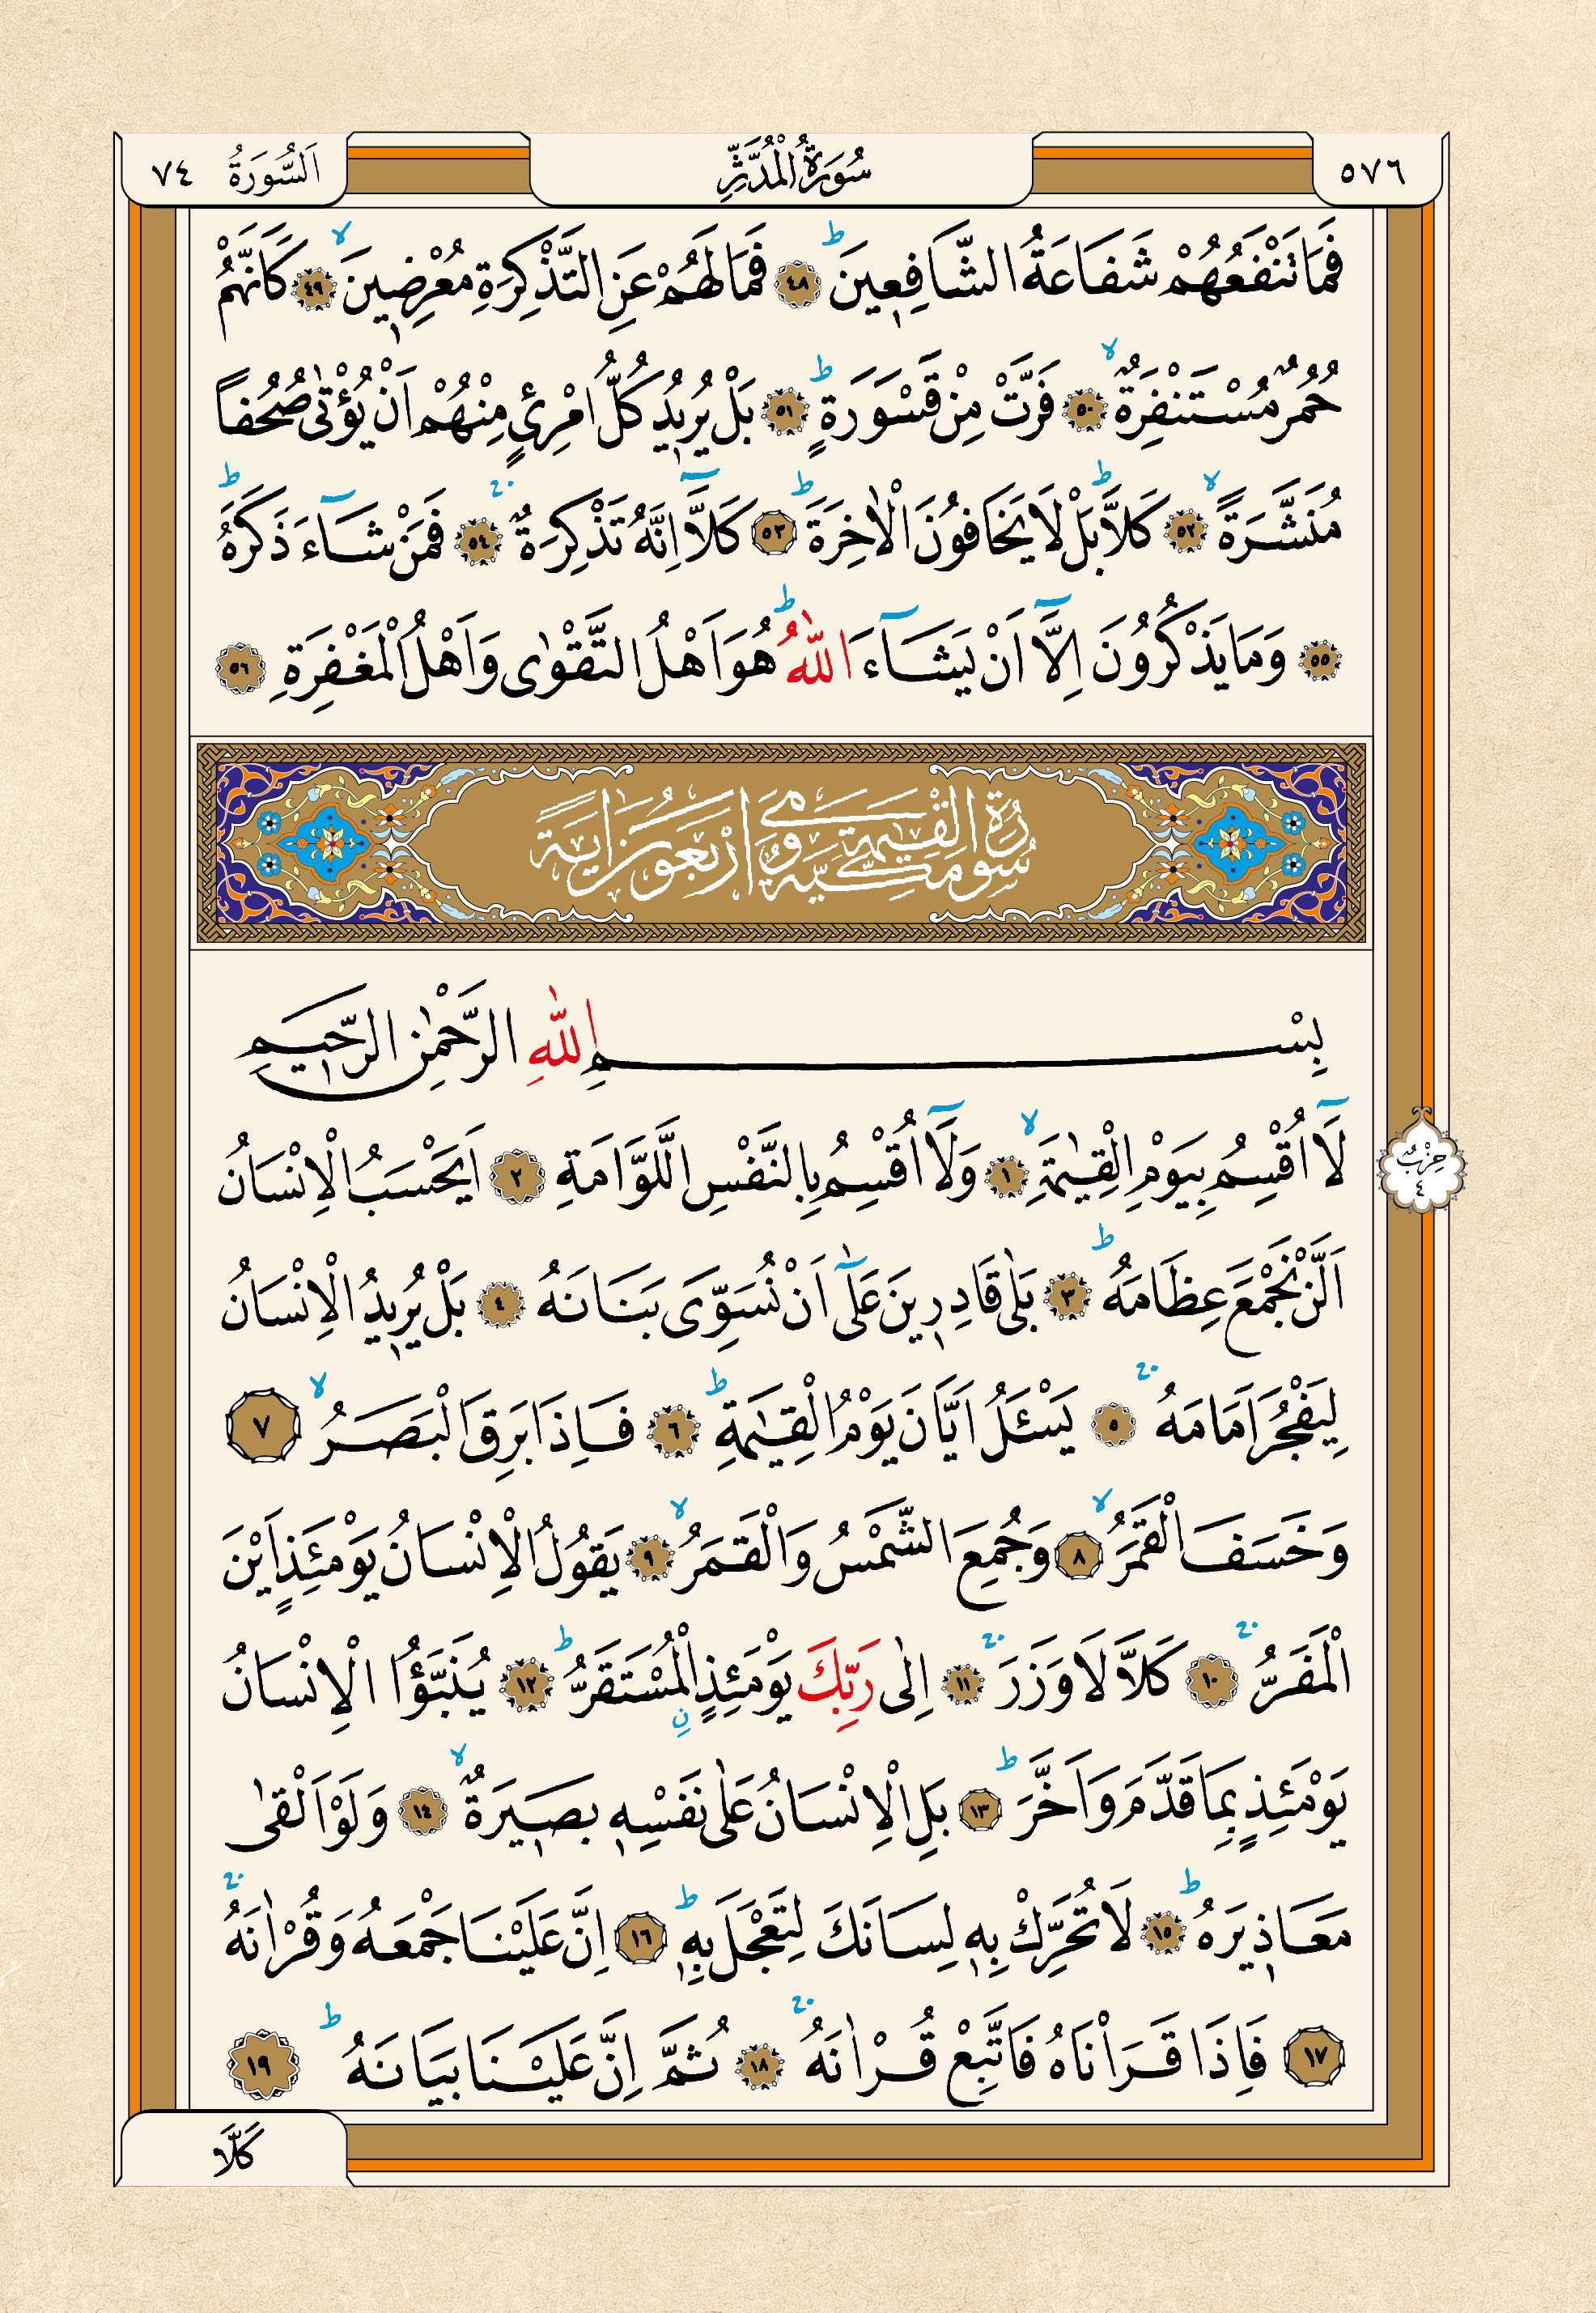 ٥٧٦ سُورَةُ الْمُدَّثِّرِ اَلسُّورَةُ ٧٤
فَمَا تَنْفَعُهُمْ شَفَاعَةُ الشَّافِعٖينَۜ ﴿٤٨﴾ فَمَا لَهُمْ عَنِ التَّذْكِرَةِ مُعْرِضٖينَۙ ﴿٤٩﴾ كَاَنَّهُمْ
حُمُرٌ مُسْتَنْفِرَةٌۙ ﴿٥٠﴾ فَرَّتْ مِنْ قَسْوَرَةٍۜ ﴿٥١﴾ بَلْ يُرٖيدُ كُلُّ امْرِئٍ مِنْهُمْ اَنْ يُؤْتٰى صُحُفاً
مُنَشَّرَةًۙ ﴿٥٢﴾ كَلَّاۜ بَلْ لَا يَخَافُونَ الْاٰخِرَةَۜ ﴿٥٣﴾ كَلَّٓا اِنَّهُ تَذْكِرَةٌۚ ﴿٥٤﴾ فَمَنْ شَٓاءَ ذَكَرَهُۜ
﴿٥٥﴾ وَمَا يَذْكُرُونَ اِلَّٓا اَنْ يَشَٓاءَ اللّٰهُۜ هُوَ اَهْلُ التَّقْوٰى وَاَهْلُ الْمَغْفِرَةِ ﴿٥٦﴾
سُورَةُ الْقِيٰمَةِ مَكِّيَّةٌ وَهِيَ اَرْبَعُونَ اٰيَةً
بِسْمِ اللّٰهِ الرَّحْمٰنِ الرَّحٖيمِ
لَٓا اُقْسِمُ بِيَوْمِ الْقِيٰمَةِۙ ﴿١﴾ وَلَٓا اُقْسِمُ بِالنَّفْسِ اللَّوَّامَةِ ﴿٢﴾ اَيَحْسَبُ الْاِنْسَانُ
حِزْبٌ ٤
اَلَّنْ نَجْمَعَ عِظَامَهُۜ ﴿٣﴾ بَلٰى قَادِرٖينَ عَلٰٓى اَنْ نُسَوِّيَ بَنَانَهُ ﴿٤﴾ بَلْ يُرٖيدُ الْاِنْسَانُ
لِيَفْجُرَ اَمَامَهُۚ ﴿٥﴾ يَسْـَٔلُ اَيَّانَ يَوْمُ الْقِيٰمَةِۜ ﴿٦﴾ فَاِذَا بَرِقَ الْبَصَرُۙ ﴿٧﴾
وَخَسَفَ الْقَمَرُۙ ﴿٨﴾ وَجُمِعَ الشَّمْسُ وَالْقَمَرُۙ ﴿٩﴾ يَقُولُ الْاِنْسَانُ يَوْمَئِذٍ اَيْنَ
الْمَفَرُّۚ ﴿١٠﴾ كَلَّا لَا وَزَرَۚ ﴿١١﴾ اِلٰى رَبِّكَ يَوْمَئِذٍنِ الْمُسْتَقَرُّۜ ﴿١٢﴾ يُنَبَّؤُا الْاِنْسَانُ
يَوْمَئِذٍ بِمَا قَدَّمَ وَاَخَّرَۜ ﴿١٣﴾ بَلِ الْاِنْسَانُ عَلٰى نَفْسِهٖ بَصٖيرَةٌۙ ﴿١٤﴾ وَلَوْ اَلْقٰى
مَعَاذٖيرَهُۜ ﴿١٥﴾ لَا تُحَرِّكْ بِهٖ لِسَانَكَ لِتَعْجَلَ بِهٖۜ ﴿١٦﴾ اِنَّ عَلَيْنَا جَمْعَهُ وَقُرْاٰنَهُۚ
﴿١٧﴾ فَاِذَا قَرَاْنَاهُ فَاتَّبِعْ قُرْاٰنَهُۚ ﴿١٨﴾ ثُمَّ اِنَّ عَلَيْنَا بَيَانَهُۜ ﴿١٩﴾
كَلَّا